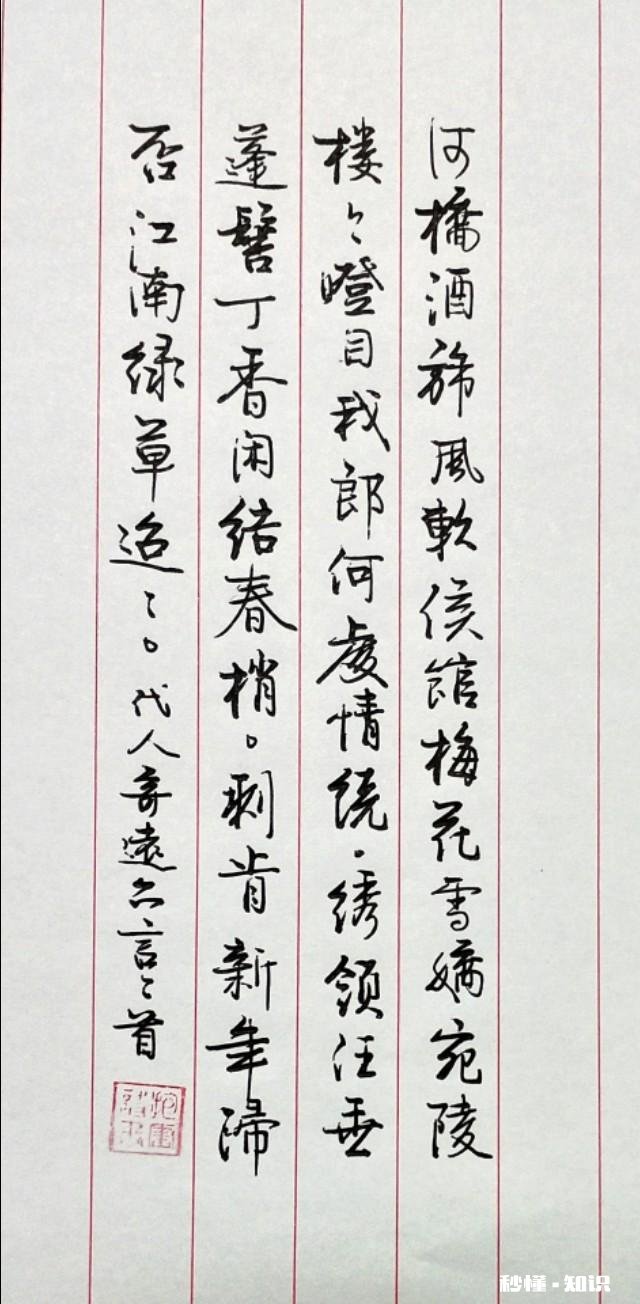 河橋酒旆風軟候館梅花雪嬌宛陵
楼々瞪目我郎何處情绕.绣領任垂
蓬髻丁香闲结春梢。剩肯新年歸
否江南绿草迢々。代人寄遠六言二首
秒懂·知识